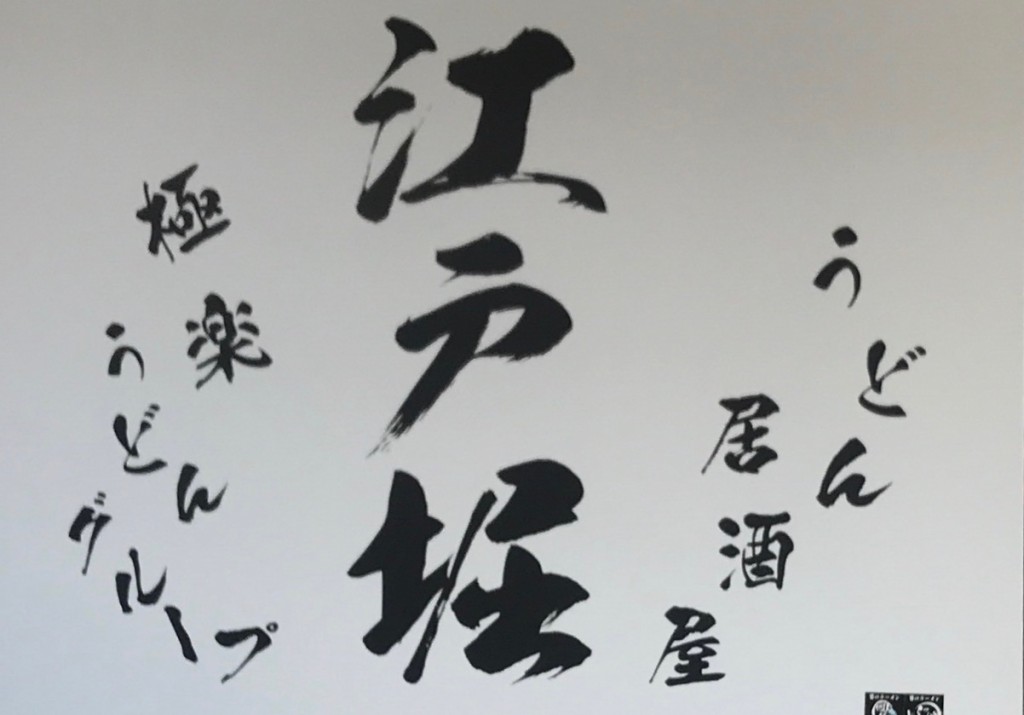 うどん
居酒屋
江戸堀
極楽
うどん
グループ